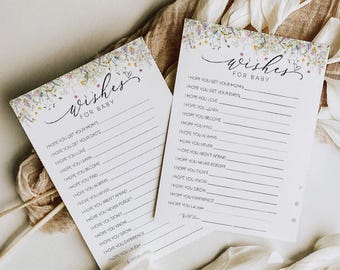 wishes
FOR BABY
I HOPE YOU GET YOUR MOM'S
I HOPE YOU GET YOUR DAD'S
I HOPE YOU LOVE
I HOPE YOU LEARN
I HOPE YOU BECOME
I HOPE YOU FIND
I HOPE YOU ALWAYS
I HOPE YOU NEVER
I HOPE YOU AREN'T AFRAID
I HOPE YOU NEVER FORGET
I HOPE YOU DON'T
I HOPE YOU KNOW
I HOPE YOU GROW
I HOPE YOU EXPERIENCE
I HOPE YOU LAUGH
wishes
FOR BABY
I HOPE YOU GET YOUR MOM'S
I HOPE YOU GET YOUR DAD'S
I HOPE YOU LOVE
I HOPE YOU LEARN
I HOPE YOU BECOME
I HOPE YOU FIND
I HOPE YOU ALWAYS
I HOPE YOU NEVER
I HOPE YOU AREN'T AFRAID
I HOPE YOU NEVER FORGET
I HOPE YOU DON'T
I HOPE YOU KNOW
I HOPE YOU GROW
I HOPE YOU EXPERIENCE
I HOPE YOU LAUGH